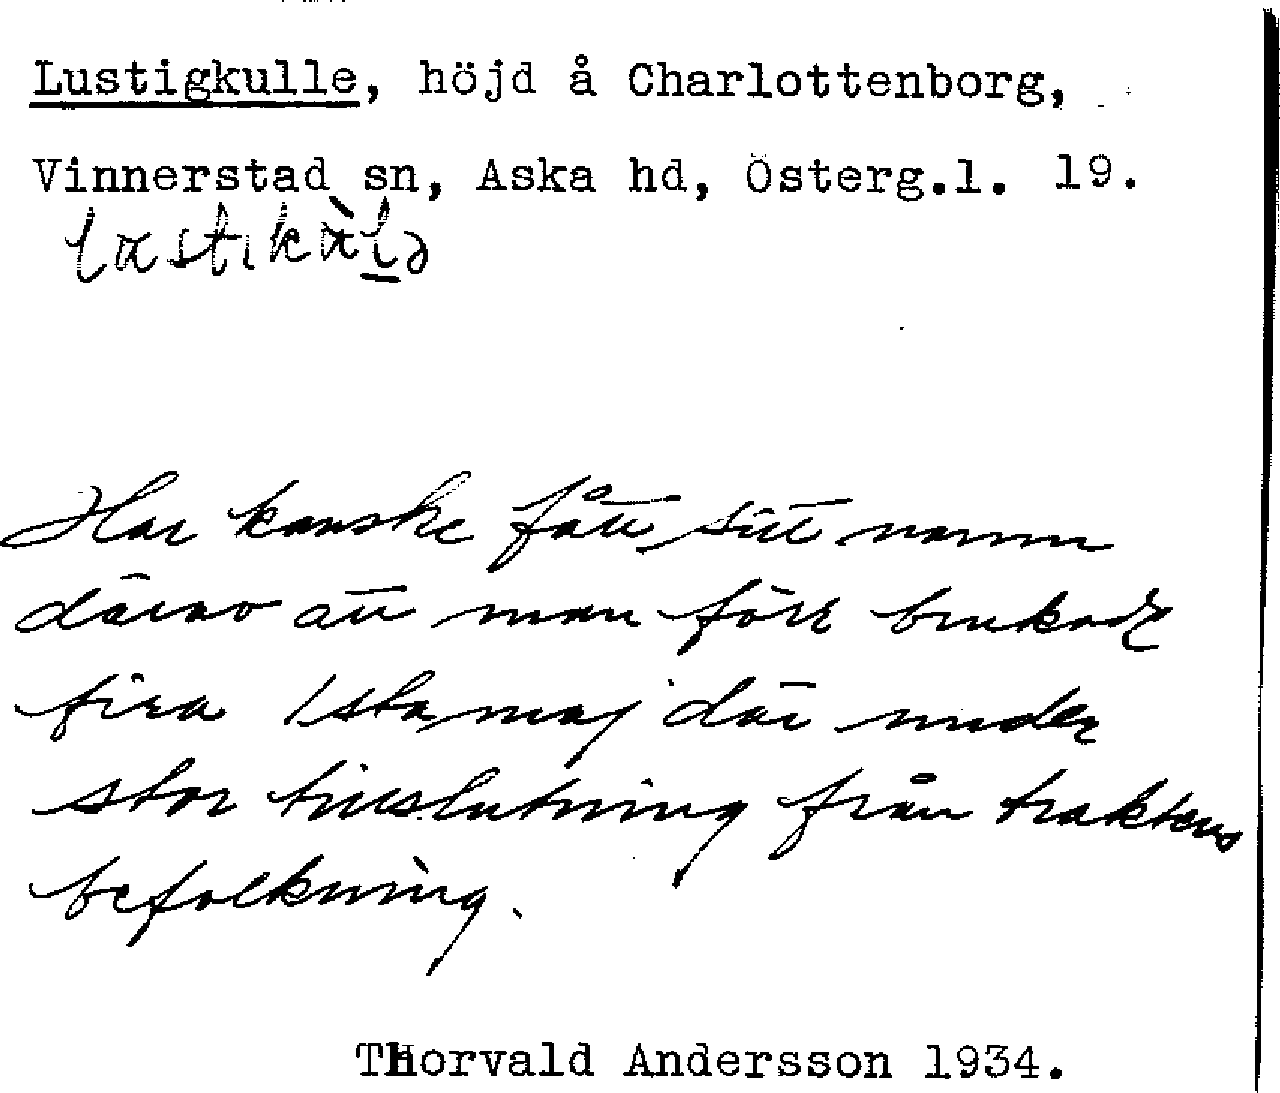 Lustigkulle, höjd å Charlottenborg,
Vinnerstad sn, Aska hd, Österg.l. 19.
Har kanske fått sitt namn
därav att man förr brukade
fira 1sta maj där under
stor tillslutning från traktens
befolkning.
Thorvald Andersson 1934.